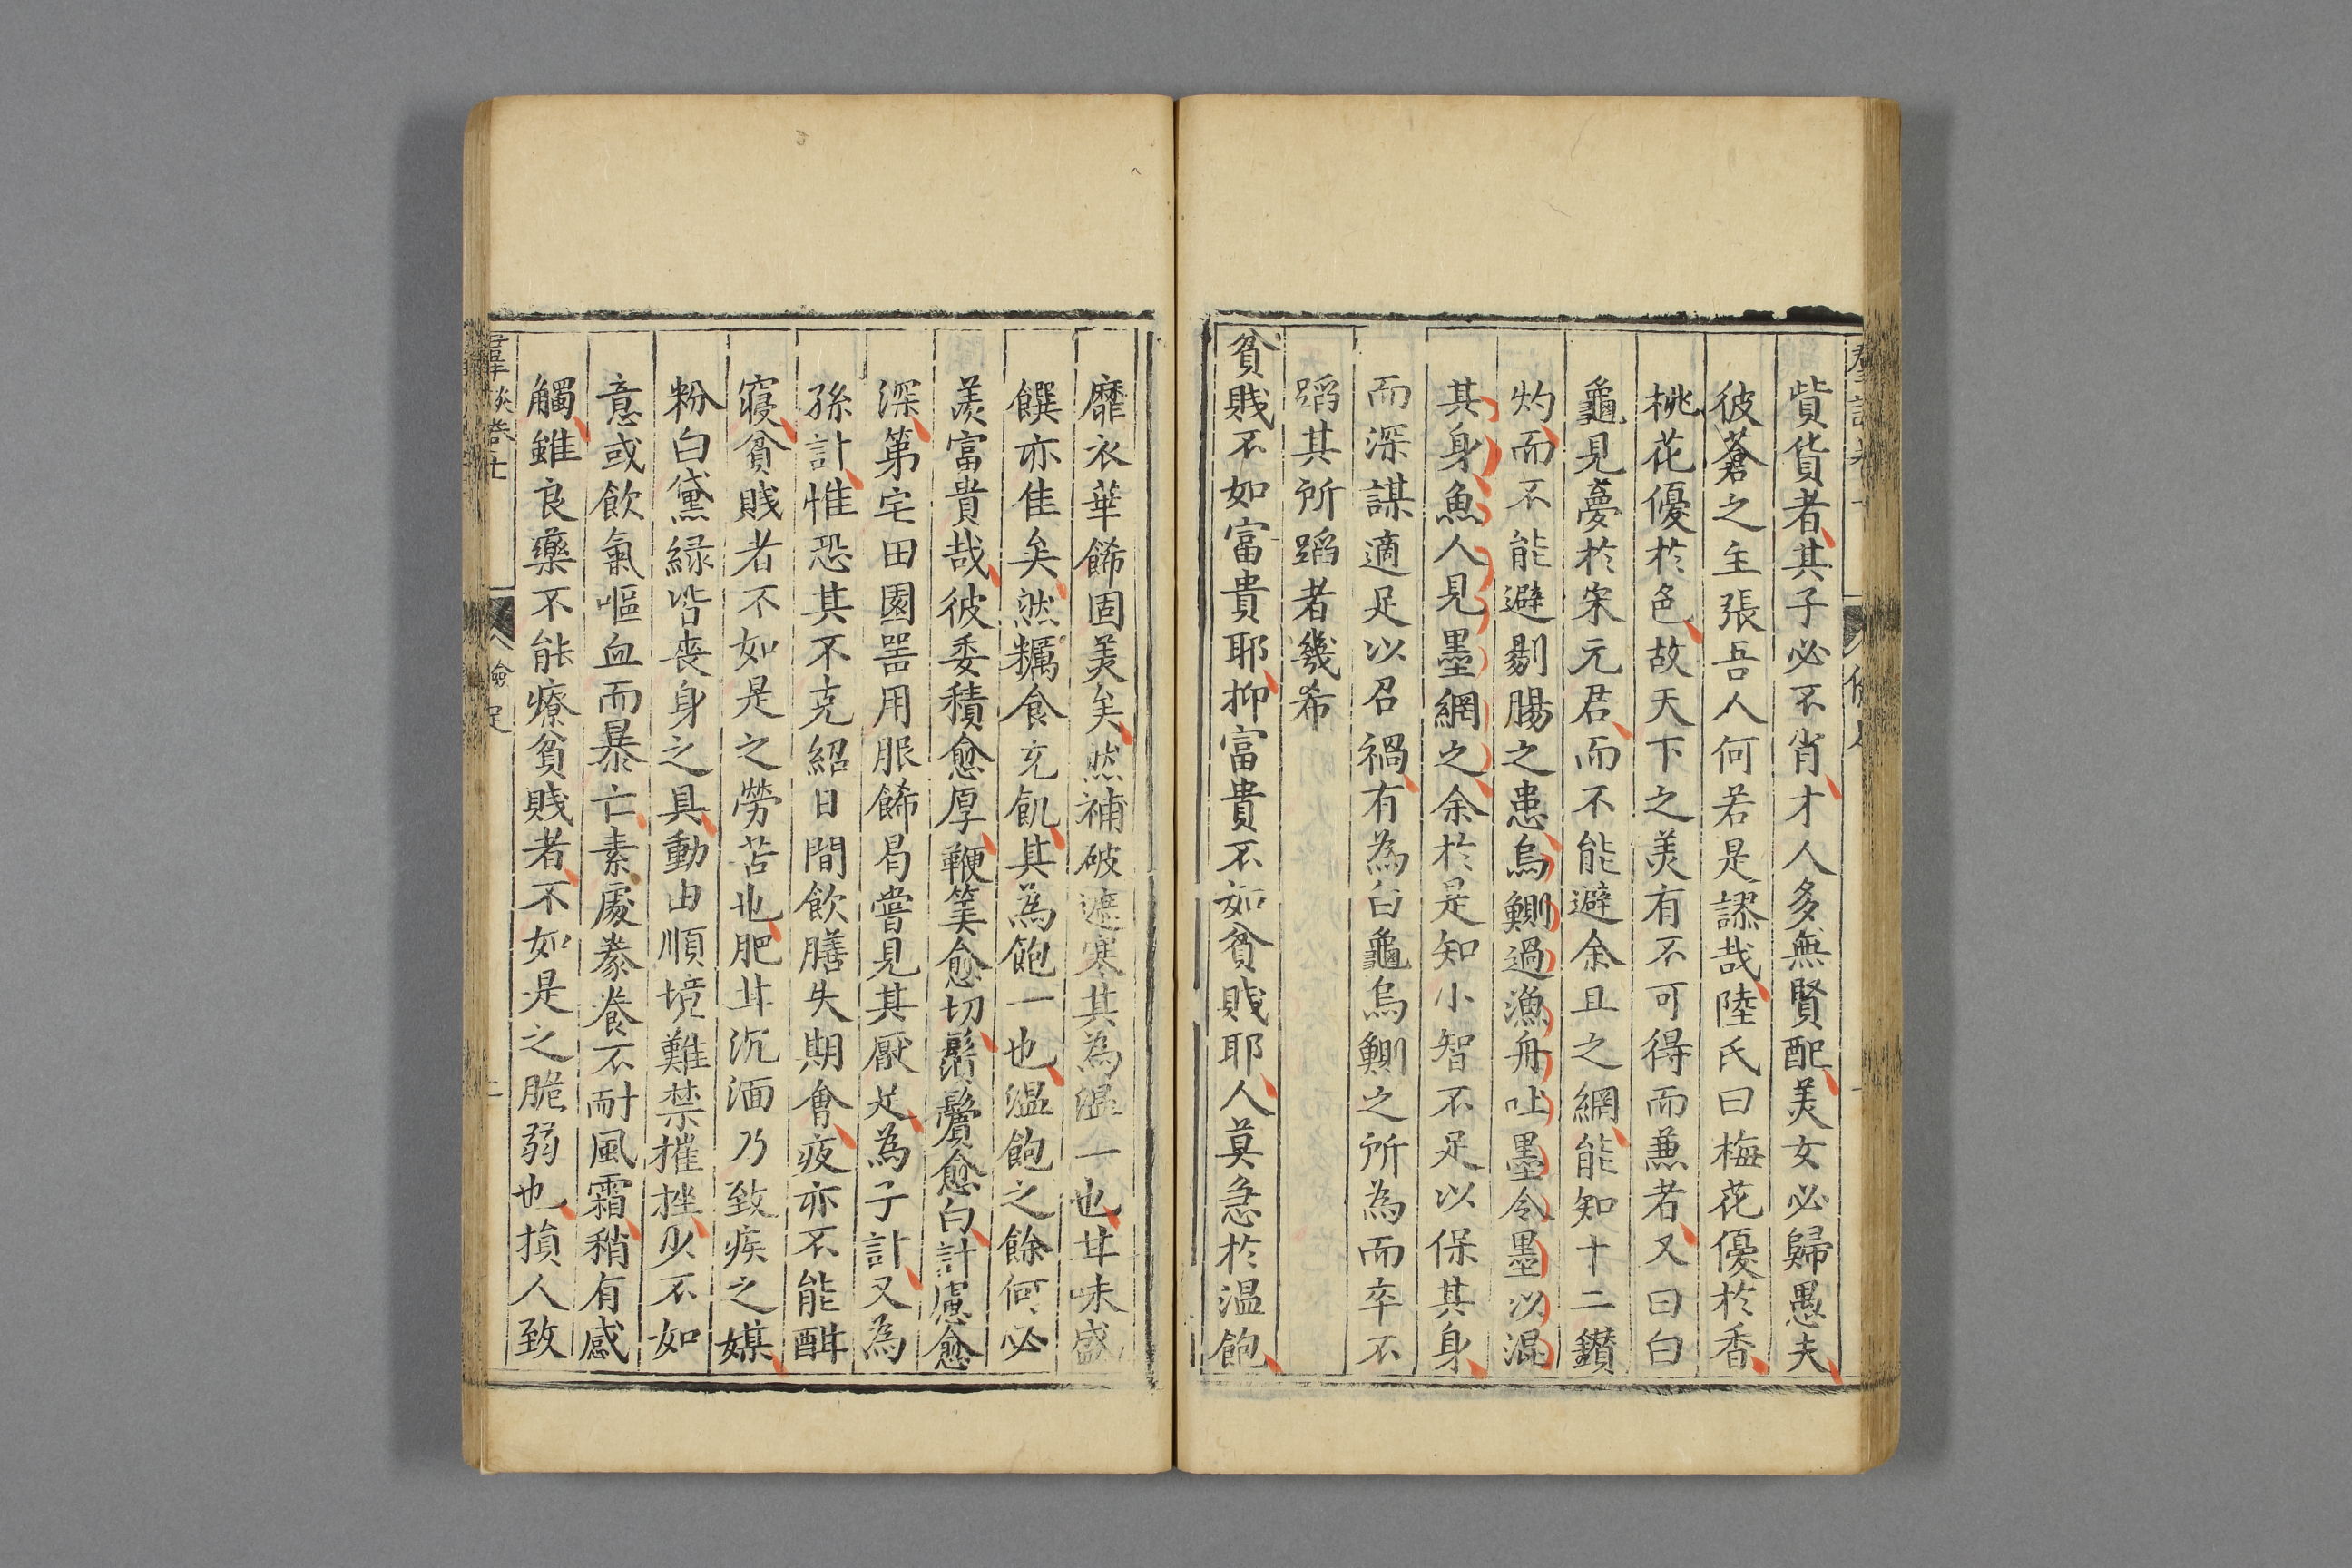 貲貨者其子必不肖才人多無賢配美女必歸愚夫
彼蒼之主張吾人何若是謬哉陸氏曰梅花優於香
桃花優於色故天下之美有不可得而兼者又曰白
龜見夢於宋元君而不能避余且之網能知十二鑚
灼而不能避剔腸之患烏鰂過漁舟吐墨令墨以混
其身魚人見墨網之余於是知小智不足以保其身
而深謀適足以召禍有為白龜烏鰂之所為而卒不
蹈其所蹈者幾希
貧賤不如富貴耶抑富貴不如貧賤耶人莫急於温飽
靡衣華餙固美矣然補破遮寒其為温一也甘味盛
饌亦佳矣然糲食充飢其為飽一也溫飽之餘何必
羨富貴哉彼委積愈厚鞭筭愈切鬍鬢愈白計慮愈
深第宅田園噐用服餙曷嘗見其厭足為子計又為
孫計惟恐其不克紹日間飲膳失期會夜亦不能酣
寢貧賤者不如是之勞苦也肥甘沉湎乃致疾之媒
粉白黛緑皆喪身之具動由順境難禁摧挫少不如
意或飲氣嘔血而暴亡素處豢養不耐風霜稍有感
觸雖良藥不能療貧賤者不如是之脆弱也損人致